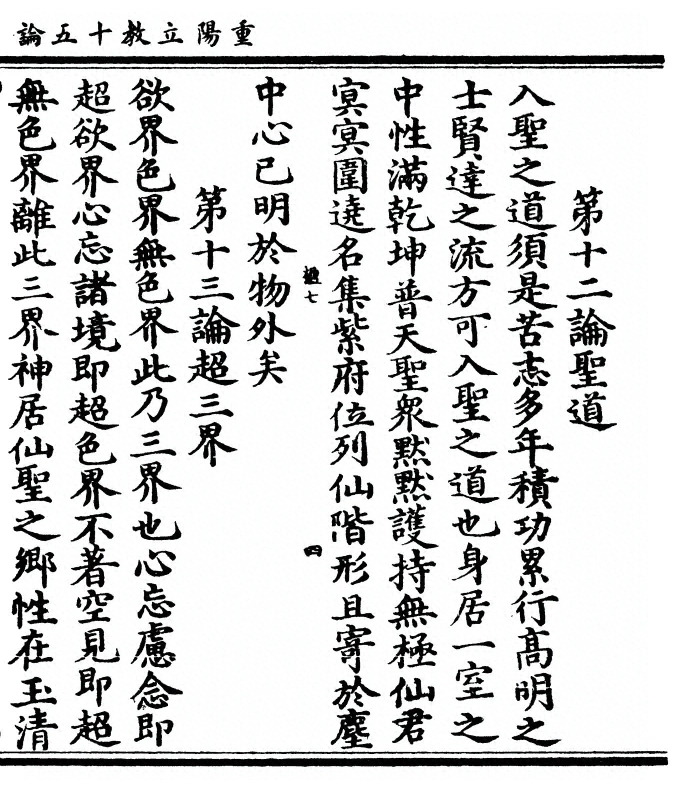 重陽立教十五論
第十二論聖道
入聖之道須是苦志多年積功累行高明之
士賢達之流方可入聖之道也身居一室之
中性滿乾坤普天聖衆默默護持無極仙君
冥冥圍遶名集紫府位列仙階形且寄於塵
中心已明於物外矣
七
四
第十三論超三界
欲界色界無色界此乃三界也心忘慮念即
超欲界心忘諸境即超色界不著空見即超
無色界離此三界神居仙聖之鄉性在玉清